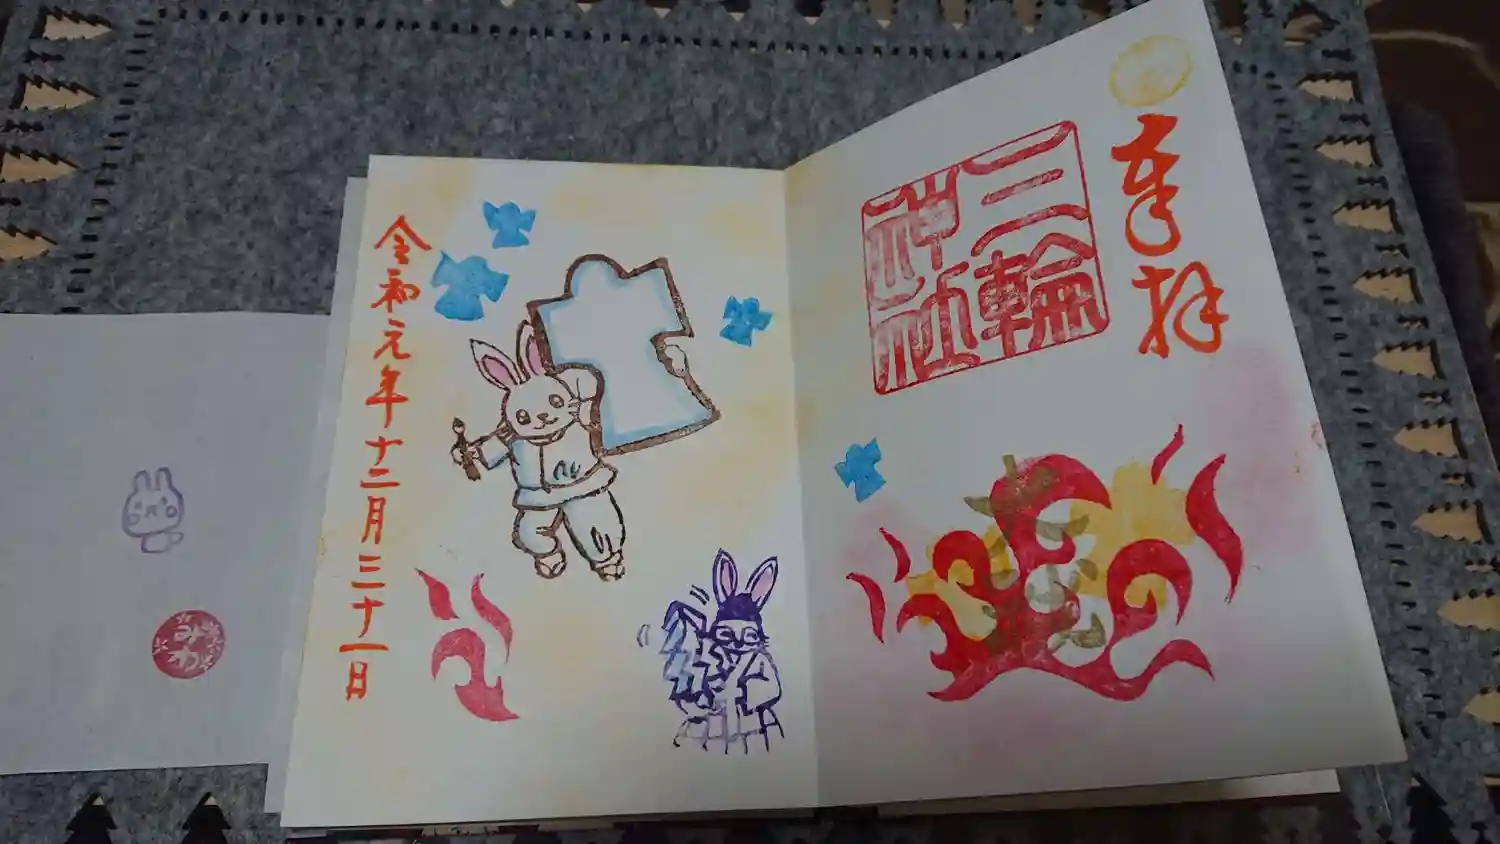 奉拝
三輪
神社
令和元年十二月三十一日
みわ